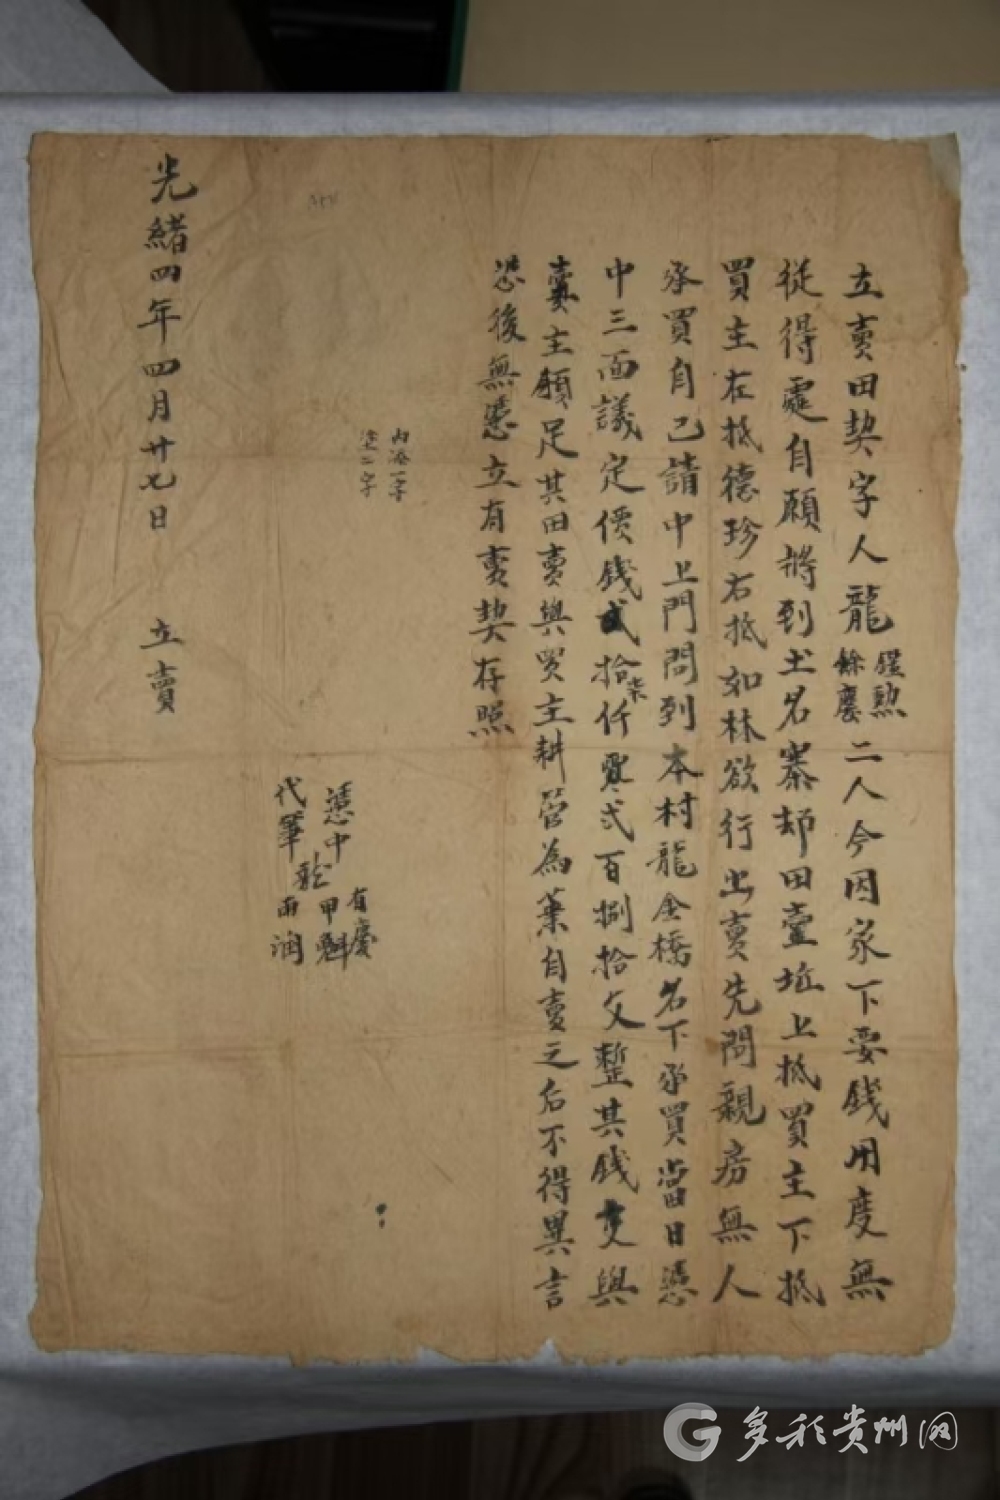 立賣田契字人龍鑑勲餘慶二人今因家下要錢用度無
從得處自願將到土名寨却田壹坵上抵買主下抵
買主左抵德珍右抵如林欲行出賣先問親房無人
承買自己請中上門問到本村龍金橋名下承買當日憑
中三面議定價錢貳拾柒仟零弍百捌拾文整其錢交與
賣主領足其田賣與買主耕管為業自賣之后不得異言
恐後無憑立有賣契存照
內添一字
塗二字
憑中龍有慶甲魁
代筆雨潤
光緒四年四月廿七日 立賣
多彩贵州网